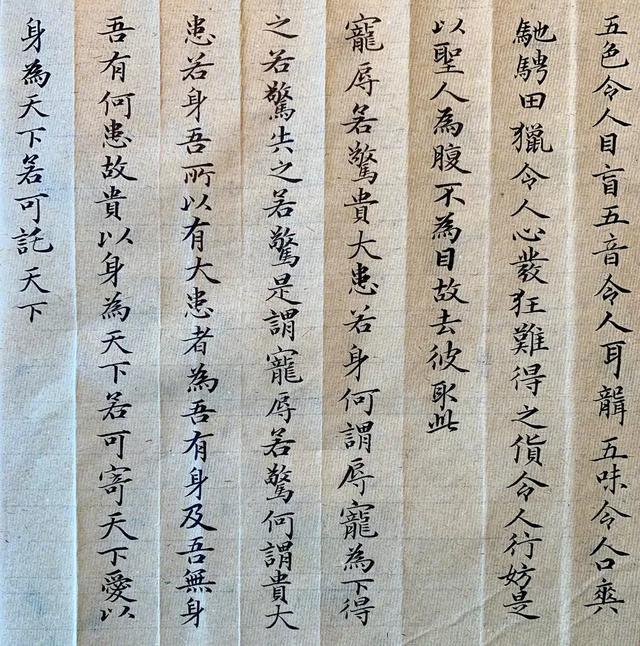 五色令人目盲五音令人耳聾五味令人口爽
馳騁田獵令人心發狂難得之貨令人行妨是
以聖人為腹不為目故去彼取此
寵辱若驚貴大患若身何謂辱寵為下得
之若驚失之若驚是謂寵辱若驚何謂貴大
患若身吾所以有大患者為吾有身及吾無身
吾有何患故貴以身為天下若可寄天下愛以
身為天下若可託天下